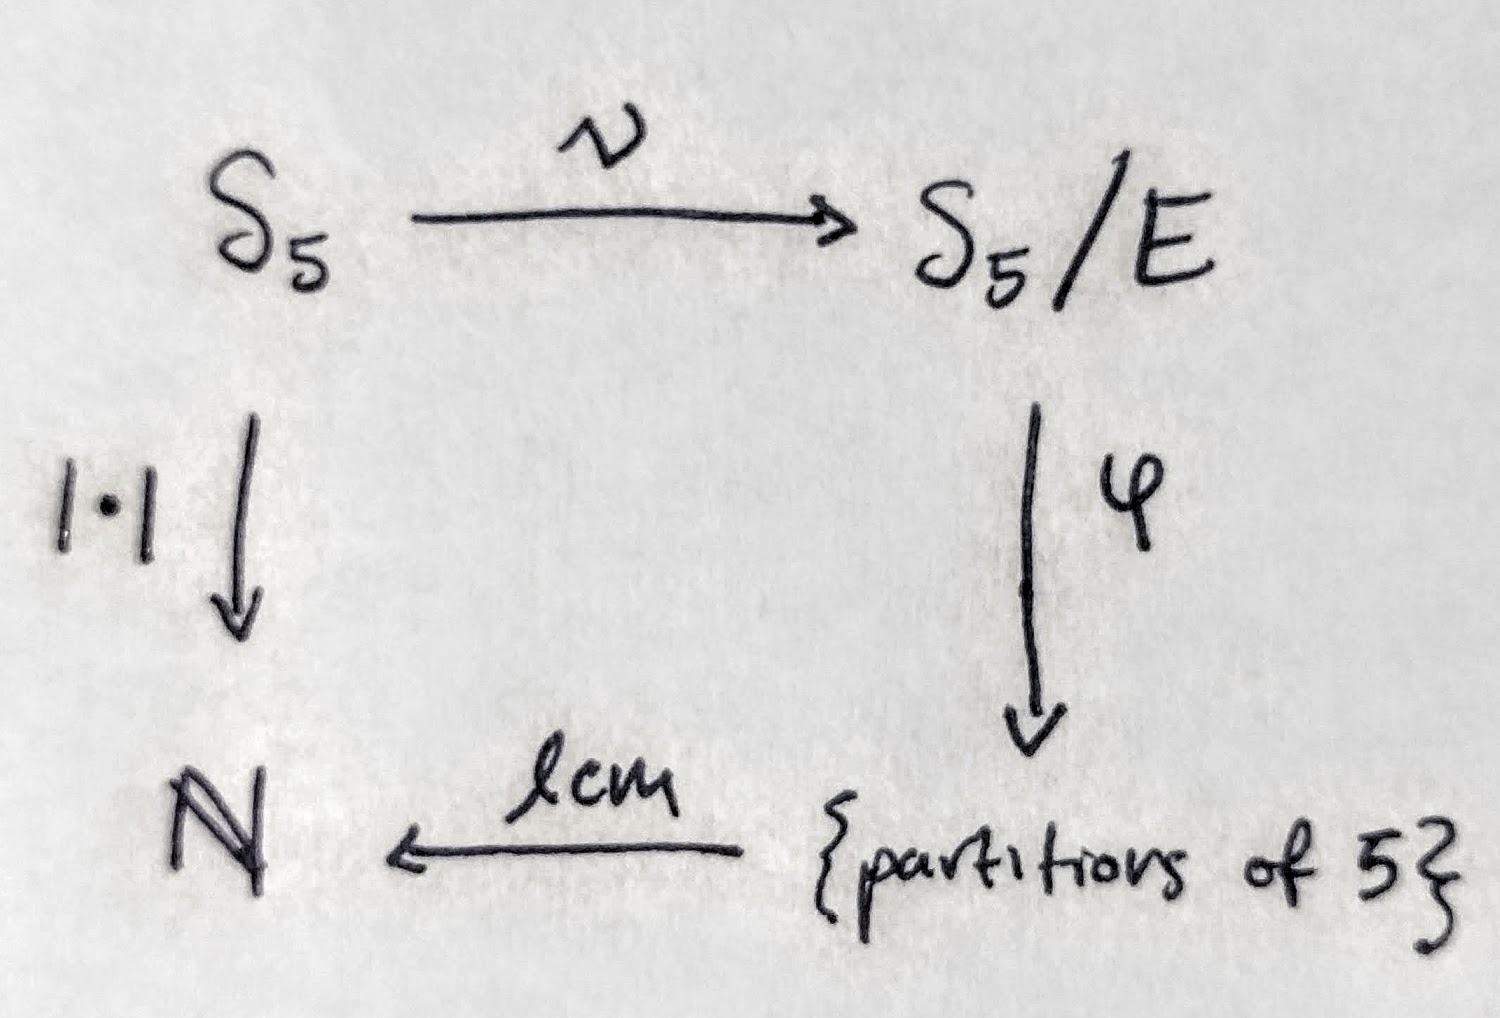 ν
S₅ S₅/E
|·| φ
lcm
ℕ {partitions of 5}